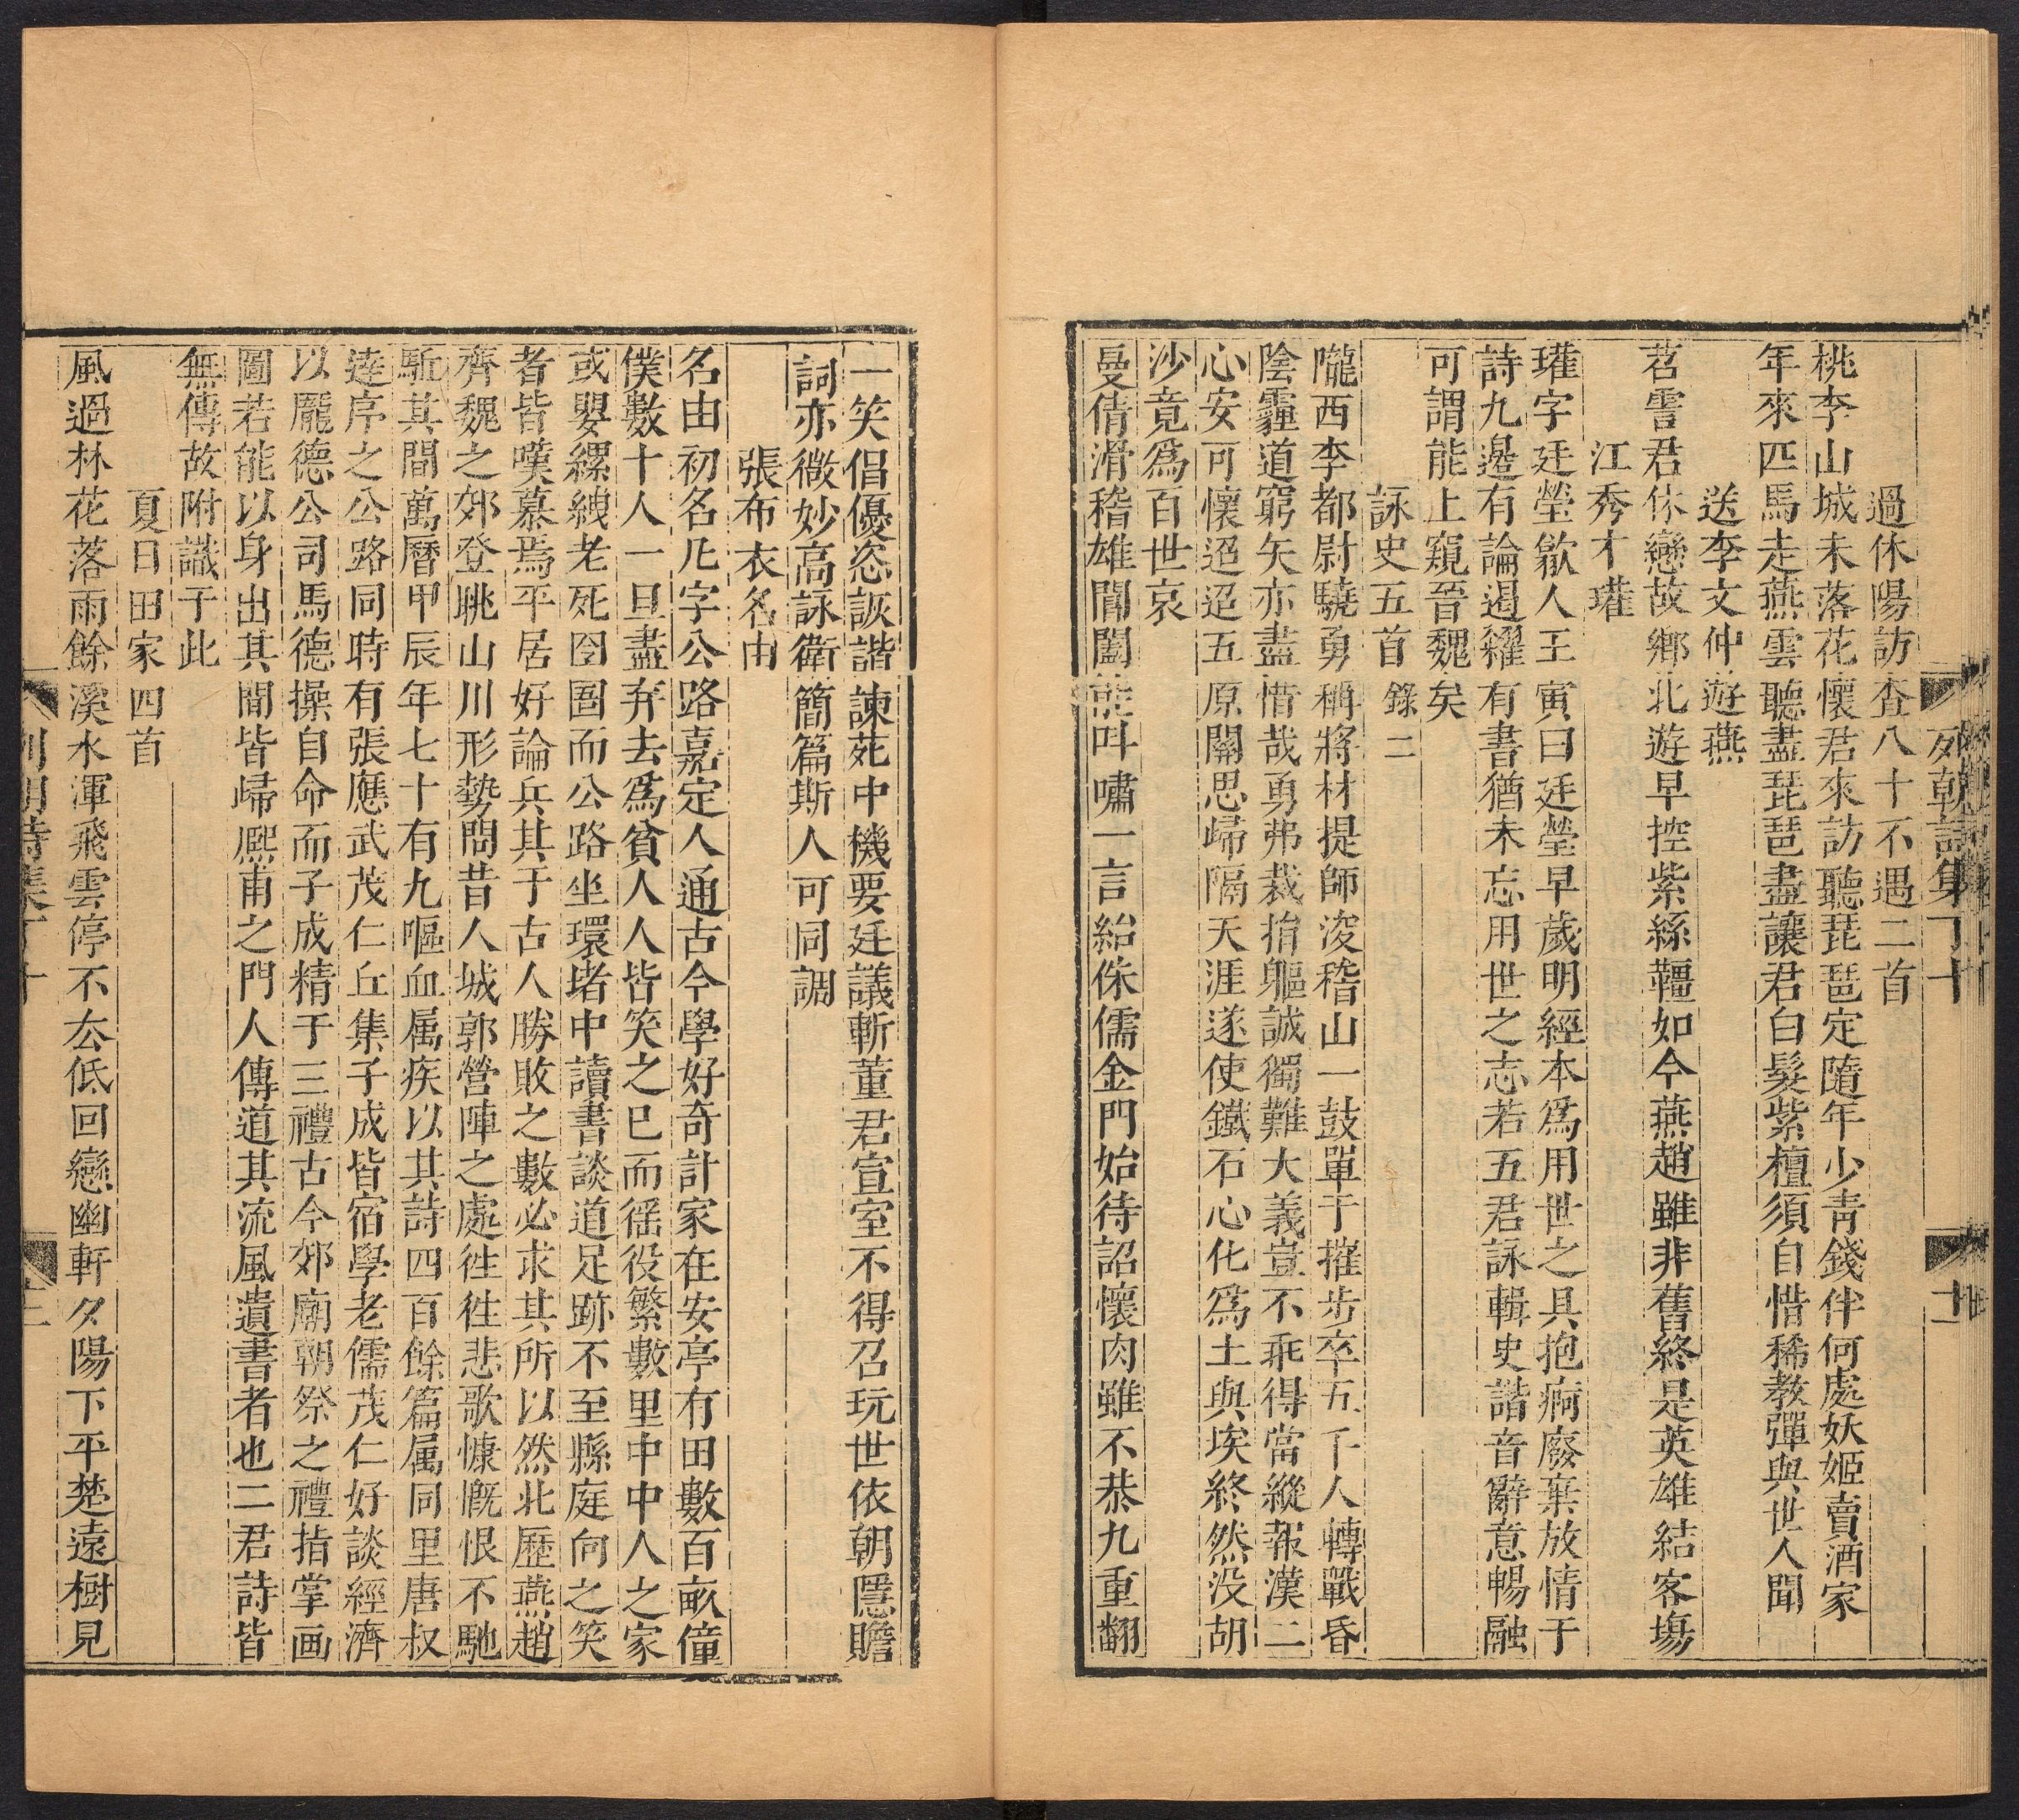 列朝詩集丁十
十一
過休陽訪查八十不遇二首
桃李山城未落花懷君來訪聽琵琶定隨年少青錢伴何處妖姬賣酒家
年來匹馬走燕雲聽盡琵琶盡讓君白髮紫檀須自惜稀教彈與世人聞
送李文仲遊燕
苕霅君休戀故鄉北遊早控紫絲韁如今燕趙雖非舊終是英雄結客場
江秀才瓘
瓘字廷瑩歙人王寅曰廷瑩早歲明經本爲用世之具抱痾廢棄放情于
詩九邊有論遏糴有書猶未忘用世之志若五君詠輯史諧音辭意暢融
可謂能上窺晉魏矣
詠史五首錄二
隴西李都尉驍勇稱將材提師浚稽山一鼓單于摧步卒五千人轉戰昏
陰霾道窮矢亦盡惜哉勇弗裁捐軀誠獨難大義豈不乖得當縱報漢二
心安可懷迢迢五原關思歸隔天涯遂使鐵石心化爲土與埃終然没胡
沙竟爲百世哀
曼倩滑稽雄閶闔能叫嘯一言紿侏儒金門始待詔懷肉雖不恭九重翻
一笑倡優恣詼諧諫苑中機要廷議斬董君宣室不得召玩世依朝隱贍
詞亦微妙高詠衛簡篇斯人可同調
張布衣名由
名由初名凡字公路嘉定人通古今學好奇計家在安亭有田數百畝僮
僕數十人一旦盡弃去爲貧人人皆笑之已而徭役繁數里中中人之家
或嬰縲紲老死囹圄而公路坐環堵中讀書談道足跡不至縣庭向之笑
者皆嘆慕焉平居好論兵其于古人勝敗之數必求其所以然北歷燕趙
齊魏之郊登眺山川形勢問昔人城郭營陣之處徃徃悲歌慷慨恨不馳
駈其間萬曆甲辰年七十有九嘔血属疾以其詩四百餘篇属同里唐叔
達序之公路同時有張應武茂仁丘集子成皆宿學老儒茂仁好談經濟
以龐德公司馬德操自命而子成精于三禮古今郊廟朝祭之禮指掌画
圖若能以身出其間皆歸熙甫之門人傳道其流風遺書者也二君詩皆
無傳故附識于此
夏日田家四首
風過林花落雨餘溪水渾飛雲停不厺低回戀幽軒夕陽下平楚遠樹見
列朝詩集丁十